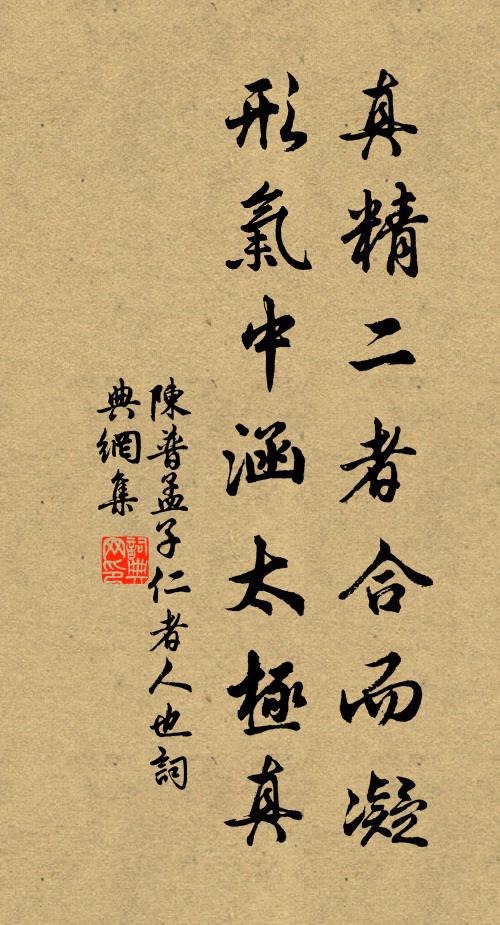 真精二者合而凝
形氣中涵太極真
陳普孟子仁者人也詞
典網集
詞典
网印